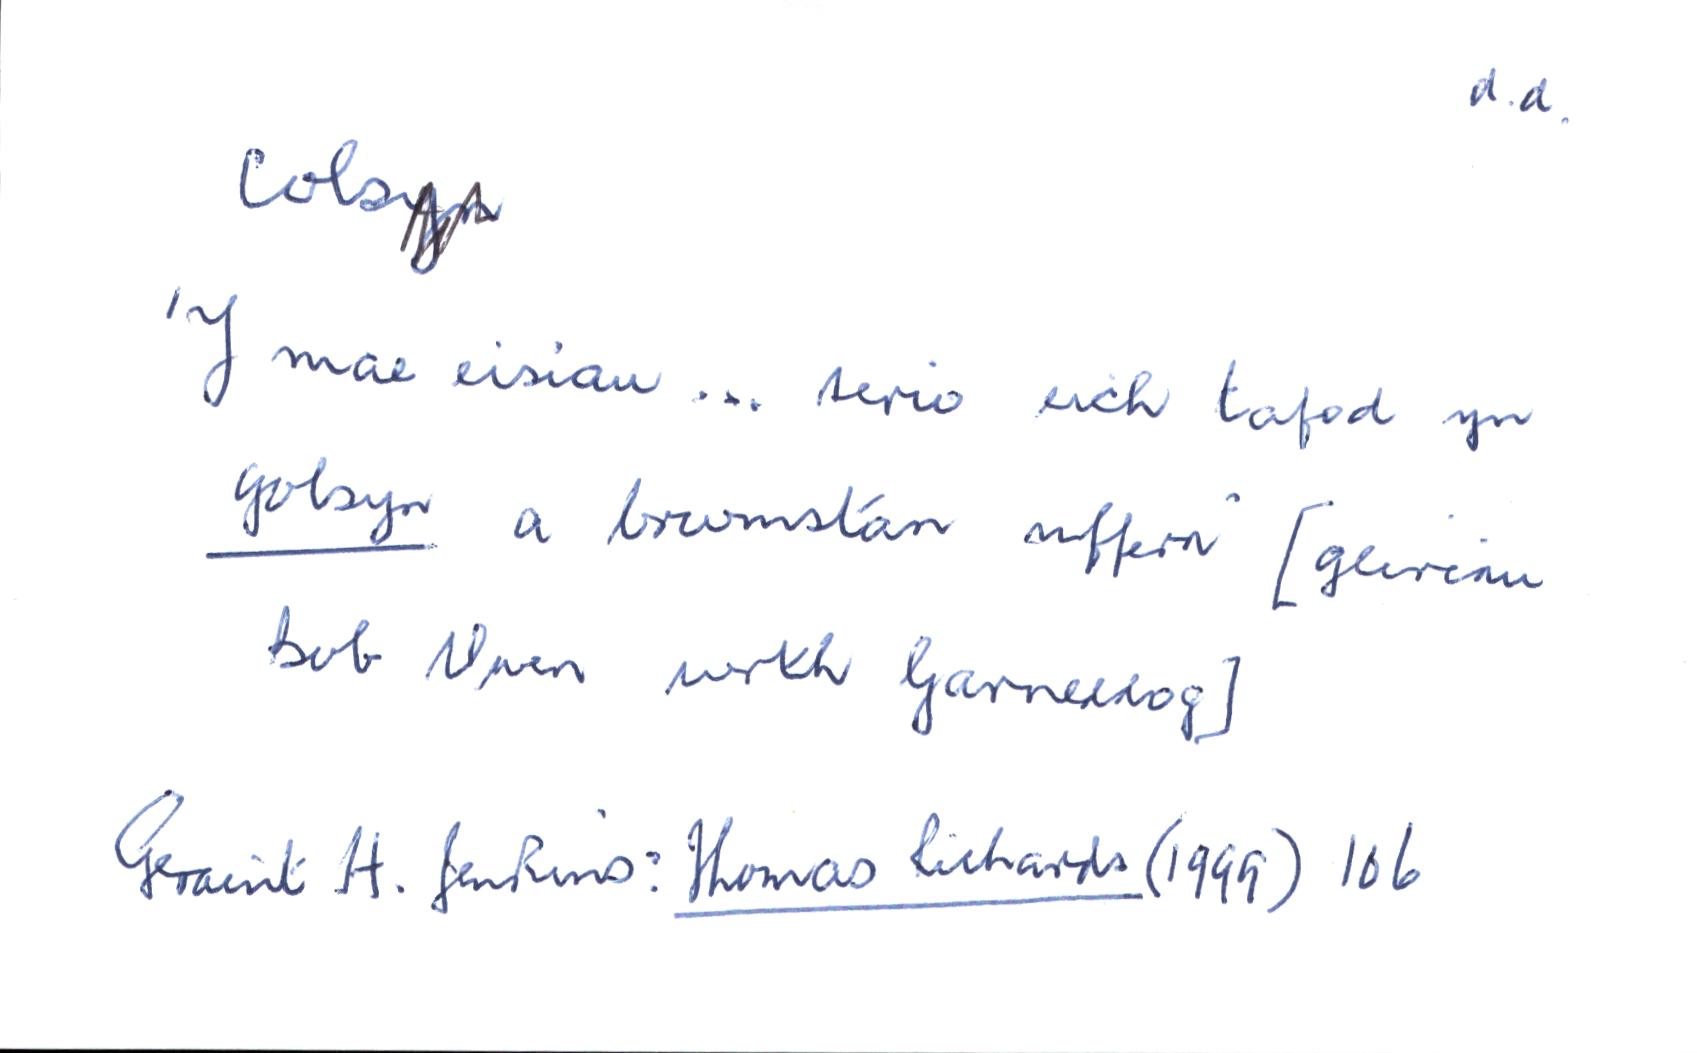 d.d.
Colsyn
'Y mae eisiau ... serio eich tafod yn
golsyn a brwmstán uffern' [geiriau
Bob Owen wrth Garneddog]
Geraint H. Jenkins: Thomas Richards (1999) 106